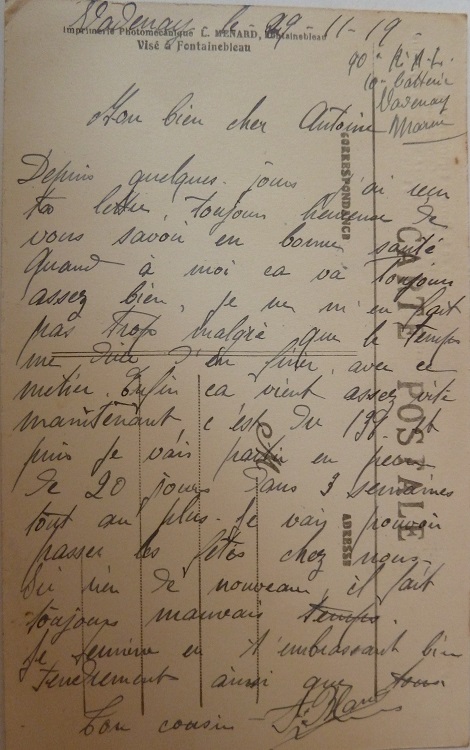 Vadenay le 29-11-19-
Imprimerie Photomécanique L. MENARD, Fontainebleau
Visé à Fontainebleau
90e R.A.L.
10e batterie
Vadenay
Marne
Mon bien cher Antoine
Depuis quelques jours j'ai reçu
ta lettre, toujours heureux de
vous savoir en bonne santé
Quand à moi ca va toujours
assez bien, je ne m'en fait
pas trop malgré que le temps
me dure d'en finir avec ce
métier. Enfin ca vient assez vite
maintenant, c'est du 139 et
puis je vais partir en perm
de 20 jours dans 3 semaines
tout au plus. Je vais pouvoir
passer les fêtes chez nous.
Ici rien de nouveau, il fait
toujours mauvais temps.
Je termine en t'embrassant bien
tendrement ainsi que tous
Ton cousin
CORRESPONDANCE
CARTE POSTALE
ADRESSE
M